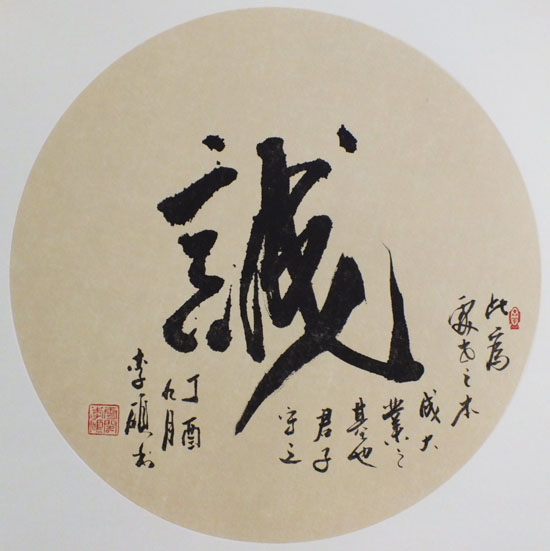 誠
此為
處世之本
成大
業之
基也
君子
守之
丁酉
九月
李